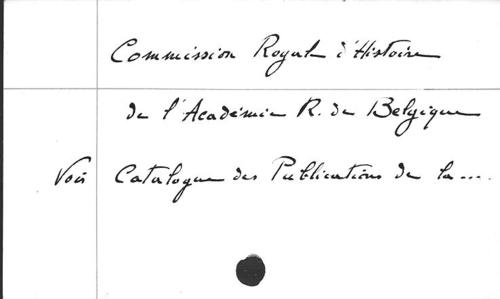 Commission Royal d'Histoire
de l'Académie R. de Belgique
Voir Catalogue des Publications de la ...